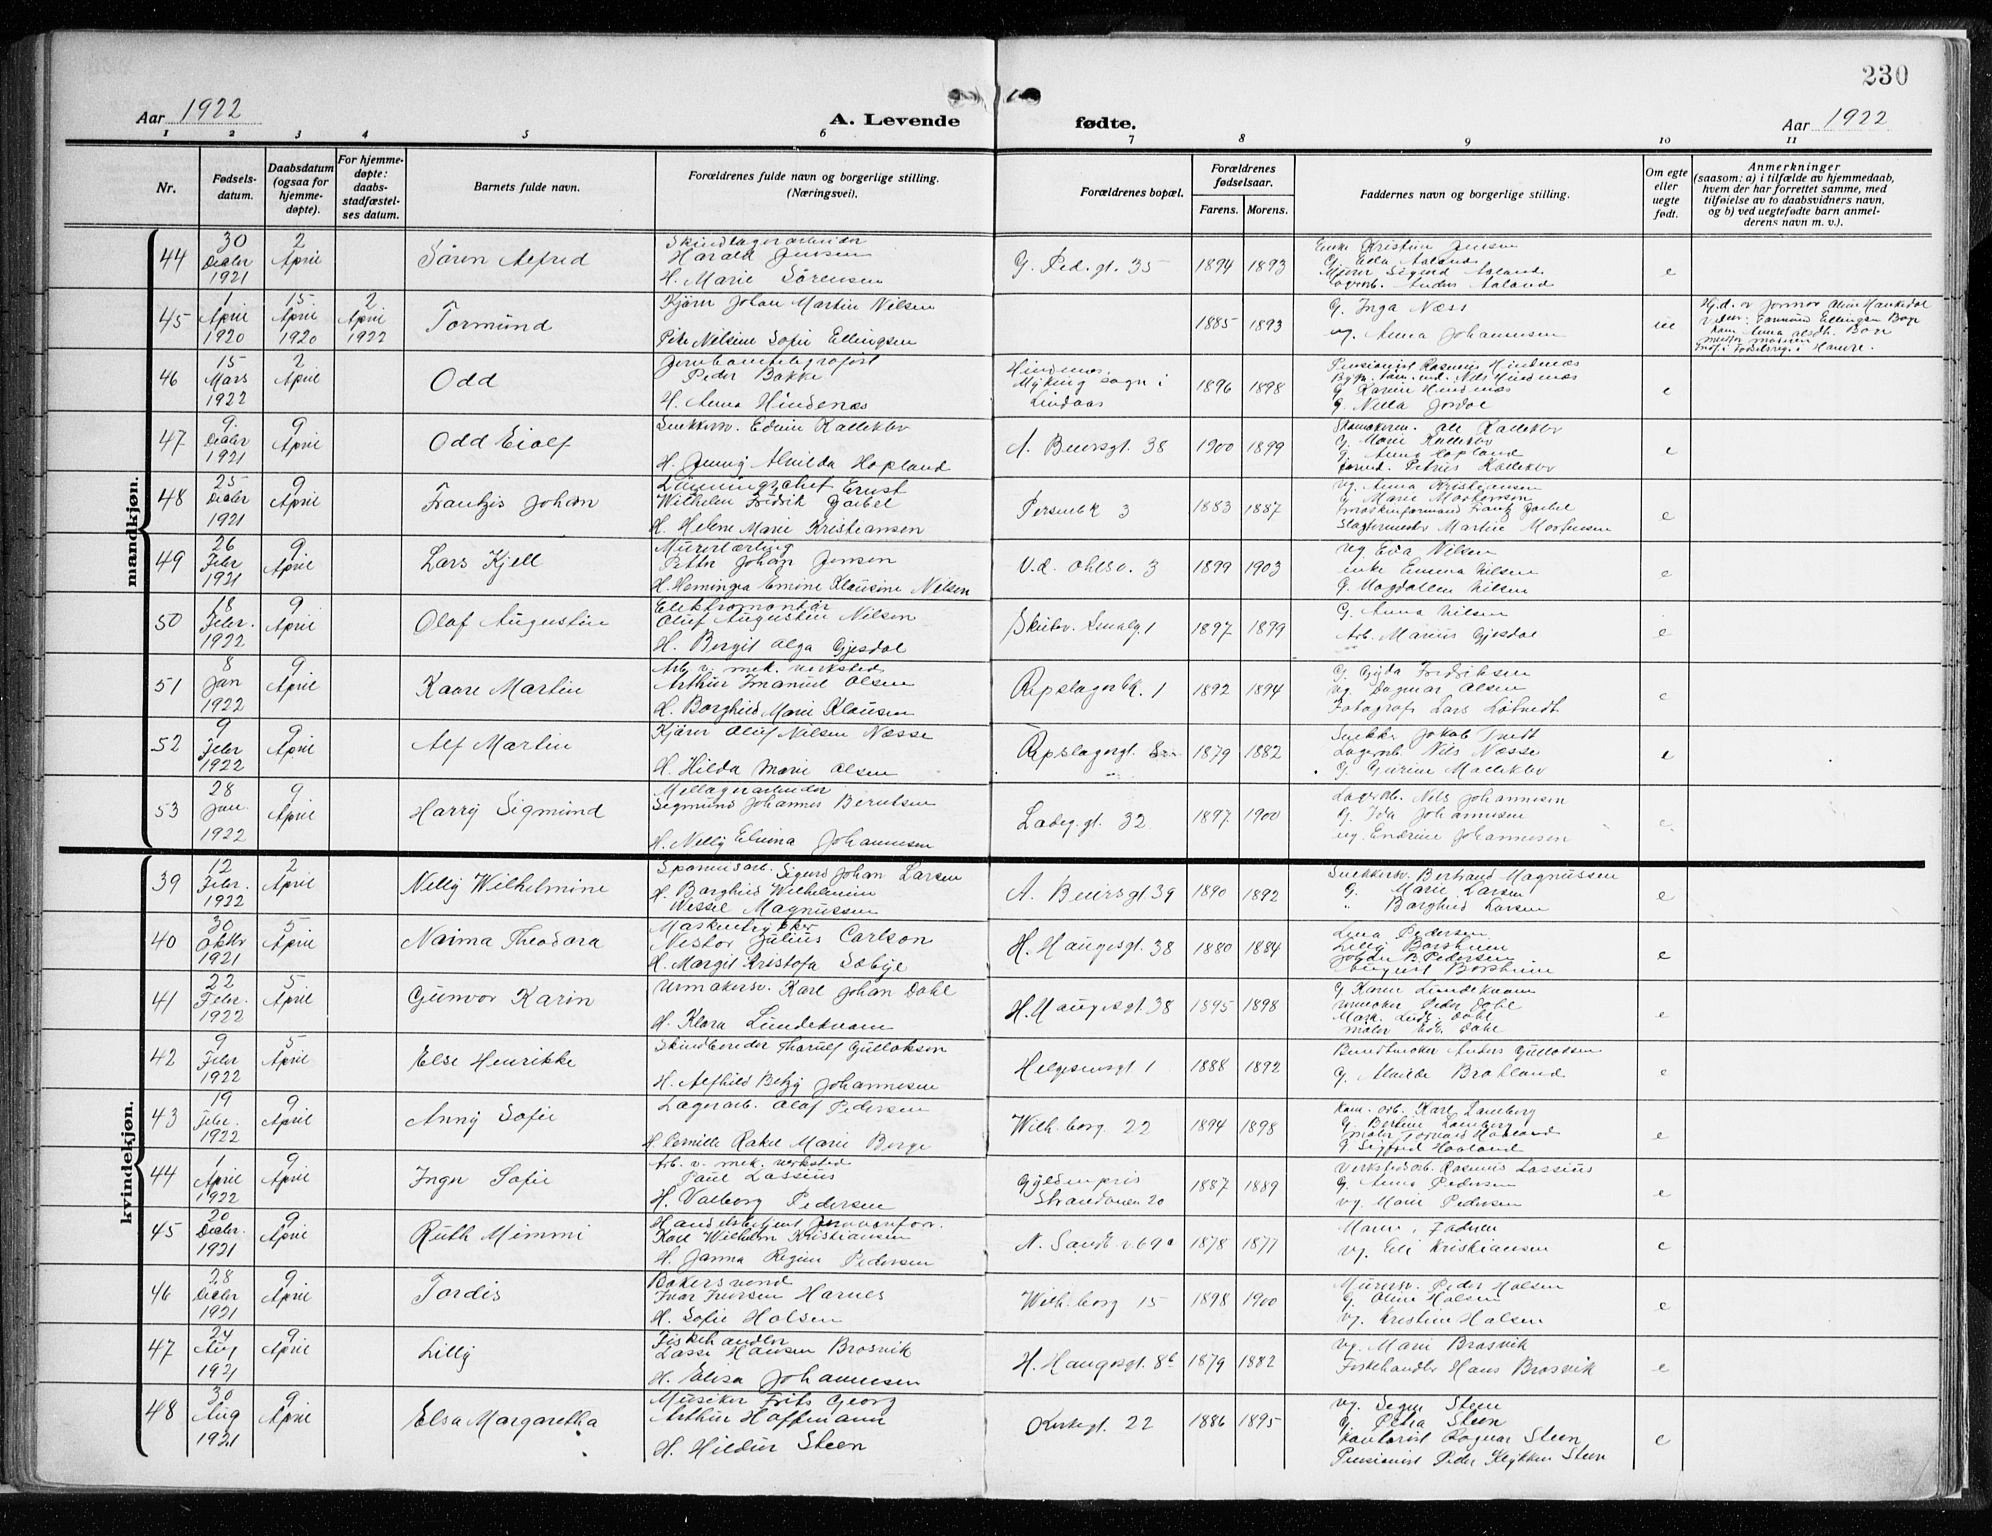 230
Aar 1922
A. Levende fødte.
Aar 1922
1 2 3 4 5 6 7 8 9 10 11
Nr.
Fødsels-
datum.
Daabsdatum
(ogsaa for
hjemme-
døpte).
For hjemme-
døpte:
daabs-
stadfæstel-
ses datum.
Barnets fulde navn.
Forældrenes fulde navn og borgerlige stilling.
(Næringsvei).
Forældrenes bopæl.
Forældrenes
fødselsaar.
Farens. Morens.
Faddernes navn og borgerlige stilling.
Om egte
eller
uegte
født.
Anmerkninger
(saasom: a) i tilfælde av hjemmedaab,
hvem der har forrettet samme, med
tilføielse av to daabsvidners navn,
og b) ved uegtefødte barn anmel-
derens navn m. v.).
mandkjøn.
44
30
Decbr
1921
2
April
Sören Alfred
Skindlagerarbeider
Harald Jensen
H. Marie Sörensen
G. Ped. gt. 35
1894 1893
Enke Kristine Jensen
G. Edle Aaland
Kjörer Sigurd Aaland
Lagerarb. Anders Aaland
e
45
1
April
1920
15
April
1920
2
April
1922
Tormund
Kjörer Johan Martin Nilsen
Pike Nilsine Sofie Ellingsen
1885 1893
G. Inga Næss
ug. Anna Johannesen
ue
46
15
Mars
1922
2
April
Odd
Jernbanetelegrafist
Peder Bakke
H. Anna Hindenæs
Hindenæs,
Myking sogn i
Lindaas
1896 1898
Pensionist Rasmus Hindenæs
G. Karin Hindenæs
G. Nella Jordal
e
47
9
Decbr
1921
9
April
Odd Eiolf
Snekkersv. Edvin Kalleklev
H. Jenny Alvilda Hopland
A. Beiersgt. 38
1900 1899
Skomakerm. Ole Kalleklev
G. Marie Kalleklev
G. Anna Hopland
Petrus Kalleklev
e
48
25
Decbr
1921
9
April
Frantzis Johan
Ernst
Wilhelm Fredrik Gaibel
H. Helene Marie Kristiansen
Persenbk 3
1883 1887
ug. Anna Kristiansen
G. Marie Mortensen
Maskinformand Frantz Gaibel
Slagtermester Martin Mortensen
e
49
26
Febr
1921
9
April
Lars Kjell
Murerlærling
Petter Johan Jensen
H. Hemingea Emine Klausine Nilsen
V. d. Ohlsv. 3
1899 1903
ug. Eva Nilsen
enke Emma Nilsen
G. Magdalen Nilsen
e
50
18
Febr.
1922
9
April
Olaf Augustin
Elektromontör
Oluf Augustin Nilsen
H. Bergit Alga Gjesdal
Skutev. Smalg. 1
1897 1899
G. Anna Nilsen
Arb. Marius Gjesdal
e
51
8
Jan
1922
9
April
Kaare Martin
Arb. v. mek. verksted
Arthur Imanuel Olsen
H. Borghild Marie Klausen
Repslagerbk. 1
1892 1894
G. Gyda Fredriksen
ug. Dagmar Olsen
Fotograf Lars Løtvedt
e
52
9
Febr
1922
9
April
Alf Martin
Kjörer Oluf Nilsen Næsse
H. Hilda Marie Olsen
Repslagergt.
1879 1882
Snekker Jakob Tvedt
Lagerarb. Nils Næsse
G. Gurine Kalleklev
e
53
28
Jan.
1922
9
April
Harry Sigmund
Mellagerarbeider
Sigmund Johannes Berntsen
H. Nelly Elvina Johannesen
Ladeg. gt. 32
1897 1900
Lagerarb. Nils Johannesen
G. Ida Johannesen
ug. Endrine Johannesen
e
kvindekjøn.
39
12
Febr.
1922
2
April
Nelly Wilhelmine
Sporveisarb. Sigurd Johan Larsen
H. Borghild Wilhelmine
Wessel Magnussen
A. Beiersgt 39
1890 1892
Snekkersv. Bertrand Magnussen
G. Marie Larsen
" Borghild Larsen
e
40
30
Oktbr
1921
5
April
Naima Theodora
Nestor Julius Carlson
H. Margit Kristofa Sæbye
H. Haugesgt. 38
1880 1884
Lina Pedersen
Lilly Borsheim
Johan B. Pedersen
August Borsheim
e
41
22
Febr.
1922
5
April
Gunvor Karin
Urmakersv. Karl Johan Dahl
H. Klara Lundekvam
H. Haugesgt 38
1895 1898
G Karen Lundekvam
urmaker Peder Dahl
Mask. Ludv. Dahl
maler Edv. Dahl
e
42
9
Febr
1922
5
April
Else Henrikke
Skindbereder Thorulf Gulloksen
H. Alfhild Betzy Johannesen
Helgesensgt 1
1888 1892
Buntmaker Anders Gulloksen
G. Alvilde Bratland
e
43
19
Febr.
1922
9
April
Anny Sofie
Lagerarb. Olaf Pedersen
H. Pernille Rakel Marie Berge
Wilh. borg. 22
1894 1898
Kom. arb. Karl Lamberg
G. Bertine Lamberg
maler Torvald Haaland
G. Sigfrid Haaland
e
44
1
April
1922
9
April
Inger Sofie
Arb. v. mek. verksted
Paul Lassius
H. Valborg Pedersen
Gyldenpris
Strandveien 20
1887 1889
Verkstedarb. Rasmus Lassius
G. Anna Pedersen
ug. Marie Pedersen
e
45
20
Decbr.
1921
9
April
Ruth Mimmi
Karl Wilhelm Kristiansen
H. Janna Regine Pedersen
N. Sandv. v. 69a
1878 1877
Moren, Faderen
ug. Eli Kristiansen
e
46
28
Decbr
1921
9
April
Tordis
Bakersvend
Ivar Iversen Harnes
H. Sofie Halsen
Wilh. borg 15
1898 1900
Murersv. Peder Halsen
G. Oline Halsen
ug. Kristine Halsen
e
47
24
Aug
1921
9
April
Lilly
Fiskehandler
Lasse Hansen Brosvik
H. Elisa Johannesen
H. Haugesgt. 8b
1879 1882
ug Marie Brosvik
Fiskehandler Hans Brosvik
e
48
30
Aug
1921
9
April
Elsa Margaretha
Musiker Frits Georg
Arthur Hoffmann
H. Hildur Steen
Kirkegt. 22
1886 1895
ug. Signe Steen
G. Petra Steen
Kontorist Ragnar Steen
Pensionist Peder Klykken Steen
e